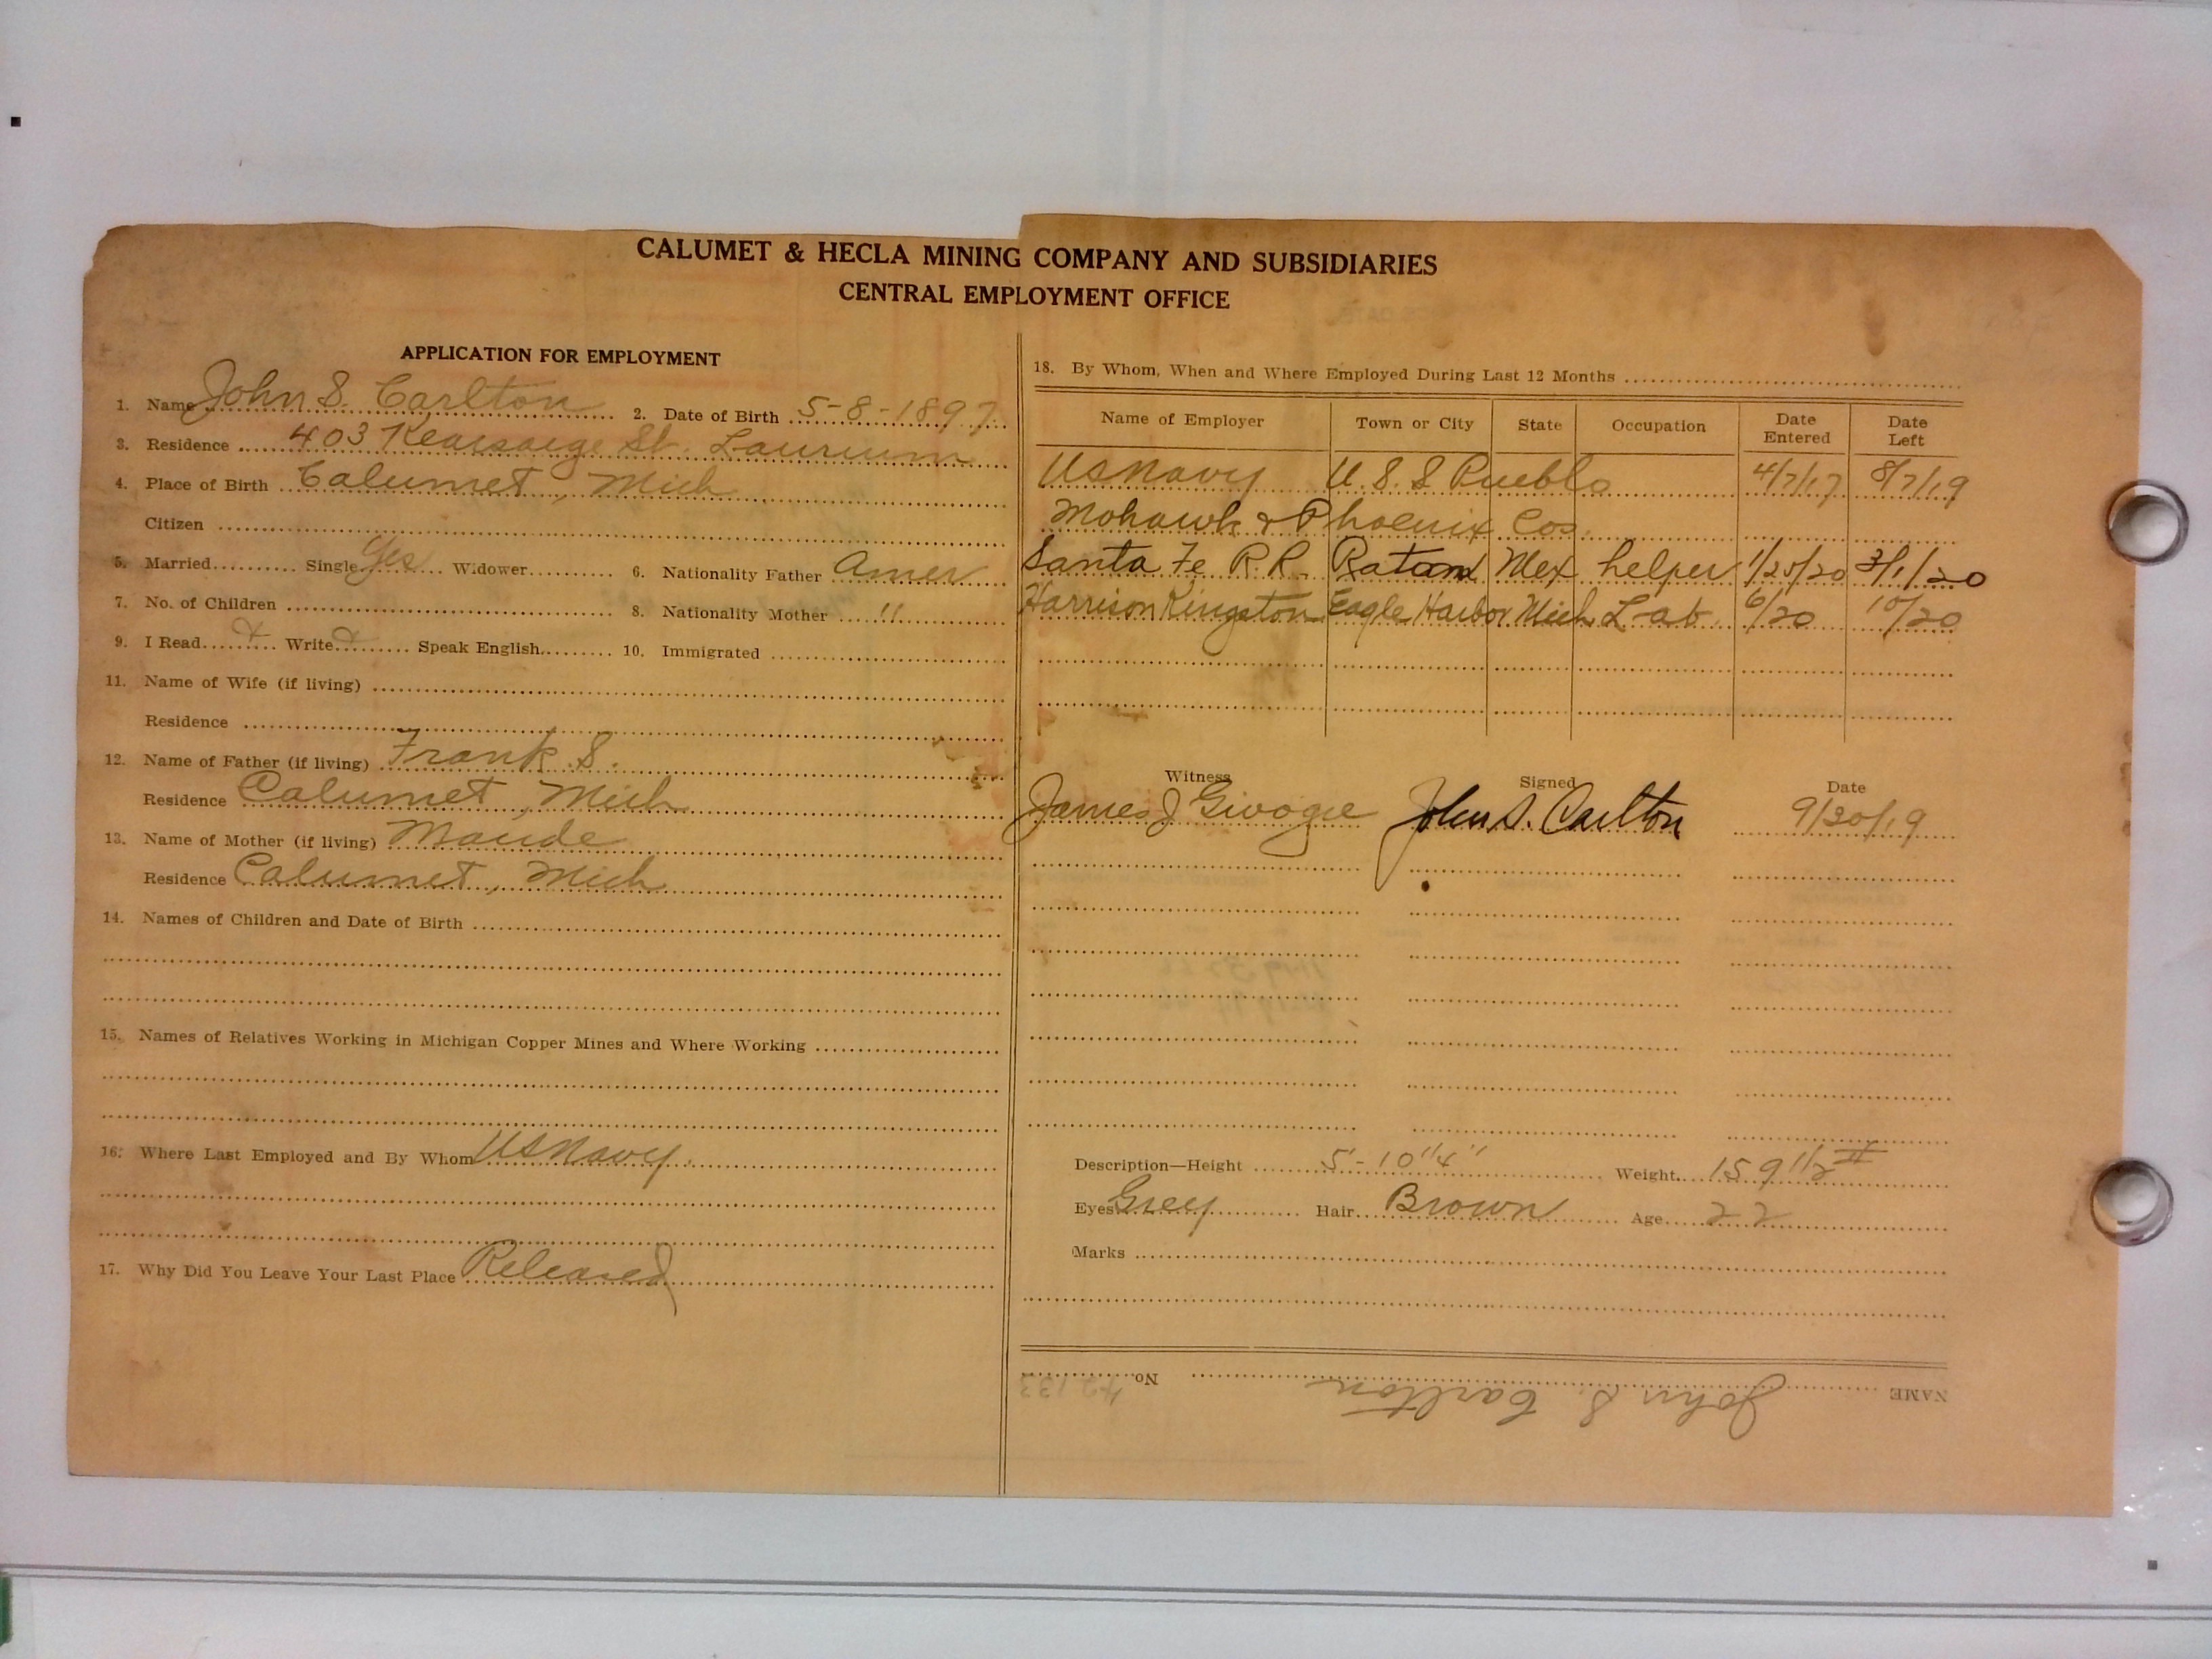 CALUMET & HECLA MINING COMPANY AND SUBSIDIARIES
CENTRAL EMPLOYMENT OFFICE
APPLICATION FOR EMPLOYMENT
1. Name John S. Carlton 2. Date of Birth 5-8-1897
3. Residence 403 Kearsarge St. Laurium
4. Place of Birth Calumet, Mich
Citizen
5. Married Single Yes Widower 6. Nationality Father Amer
7. No. of Children 8. Nationality Mother "
9. I Read Write Speak English 10. Immigrated
11. Name of Wife (if living)
Residence
12. Name of Father (if living) Frank S.
Residence Calumet, Mich
13. Name of Mother (if living) Maude
Residence Calumet, Mich
14. Names of Children and Date of Birth
15. Names of Relatives Working in Michigan Copper Mines and Where Working
16. Where Last Employed and By Whom US Navy.
17. Why Did You Leave Your Last Place Released
18. By Whom, When and Where Employed During Last 12 Months
Name of Employer Town or City State Occupation Date Entered Date Left
US Navy U.S.S Pueblo 4/7/17 8/7/19
Mohawk & Phoenix Cos.
Santa Fe R.R. Mex helper 1/20/20 3/1/20
Harrison Kingston Eagle Harbor Mich Lab. 6/20 10/20
Witness Signed Date
James J John S. Carlton 9/30/19
Description—Height 5'-10 1/4" Weight 159 1/2 #
Eyes Grey Hair Brown Age 22
Marks
NAME John S. Carlton No. 42133